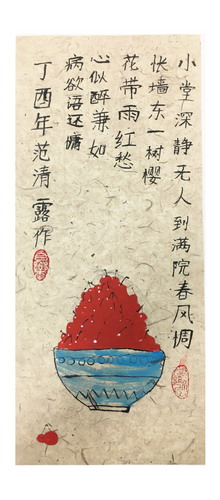 小堂深静无人到满院春风惆
怅墙东一树樱
花带雨红愁
心似醉兼如
病欲语还慵
丁酉年范清露作